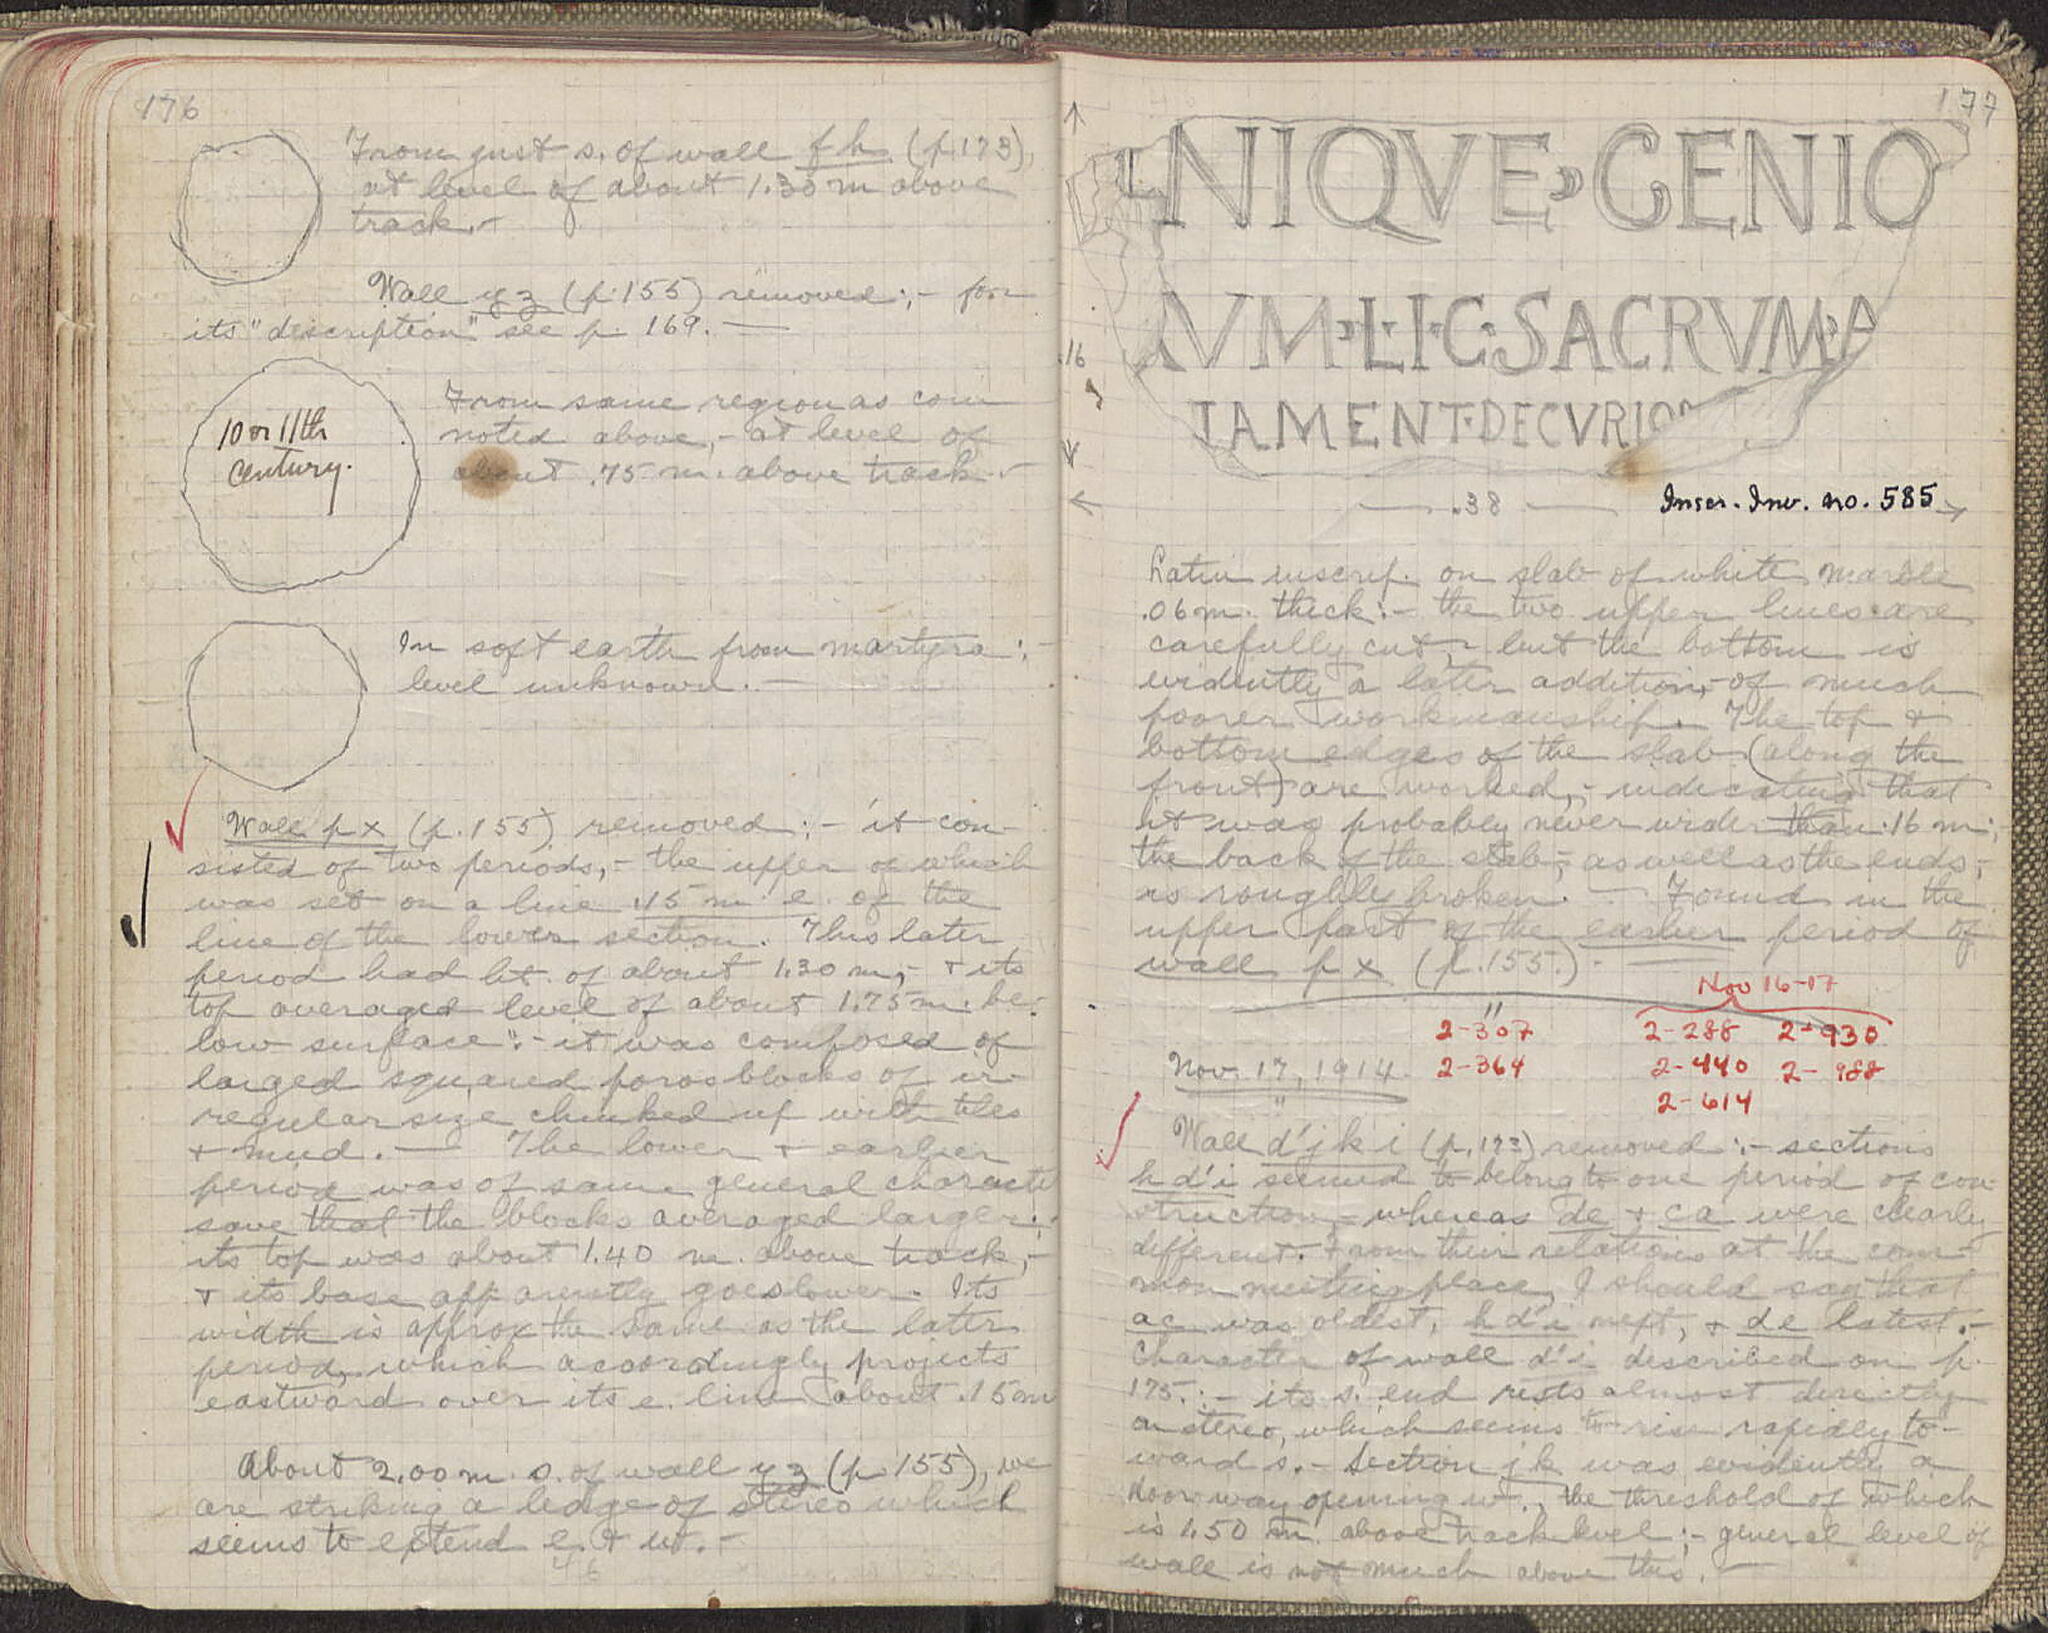 176
From just s. of wall f h (p. 173),
at level of about 1.30 m above
track.-
Wall y z (p. 155) removed:- for
its "description" see p. 169. —
10 or 11th
century.
From same region as coin
noted above,- at level of
about .75 m. above track.-
In soft earth from martyra:-
level unknown.—
Wall p x (p. 155) removed:- it con-
sisted of two periods,- the upper of which
was set on a line .15 m. e. of the
line of the lower section. This later
period had ht. of about 1.30 m,- + its
top averaged level of about 1.75 m. be-
low surface:- it was composed of
larged squared poros blocks of ir-
regular size chinked up with tiles
+ mud.— The lower + earlier
period was of same general character
save that the blocks averaged larger:-
its top was about 1.40 m. above track,-
+ its base apparently goes lower. Its
width is approx the same as the later
period, which accordingly projects
eastward over its e. line about .15 m
About 2.00 m. s. of wall y z (p. 155), we
are striking a ledge of stereo which
seems to extend e. + w.-
46
177
NIQVE GENIO
NVM·L·I·C·SACRVM·P
TAMENT·DECVRION
.16
.38
Inscr. Inv. no. 585
Latin inscrip. on slab of white marble
.06 m. thick:- the two upper lines are
carefully cut,- but the bottom is
evidently a later addition,- of much
poorer workmanship. The top +
bottom edges of the slab (along the
front) are worked,- indicating that
it was probably never wider than .16 m:-
the back of the slab,- as well as the ends,-
is roughly broken. — Found in the
upper part of the earlier period of
wall p x (p. 155.)-
Nov 16-17
2-307 2-288 2-930
Nov. 17, 1914. 2-364 2-440 2-988
2-614
Wall d' j k i (p. 173) removed:- sections
h d' i seemed to belong to one period of con-
struction,- whereas de + ca were clearly
different. From their relations at the com-
mon meeting place, I should say that
ac was oldest, h d' i next, + de latest.-
Character of wall d' i described on p.
175.:- its s. end rests almost directly
on stereo, which seems to rise rapidly to-
ward s.- Section j k was evidently a
doorway opening w., the threshold of which
is 1.50 m. above track level:- general level of
wall is not much above this.—